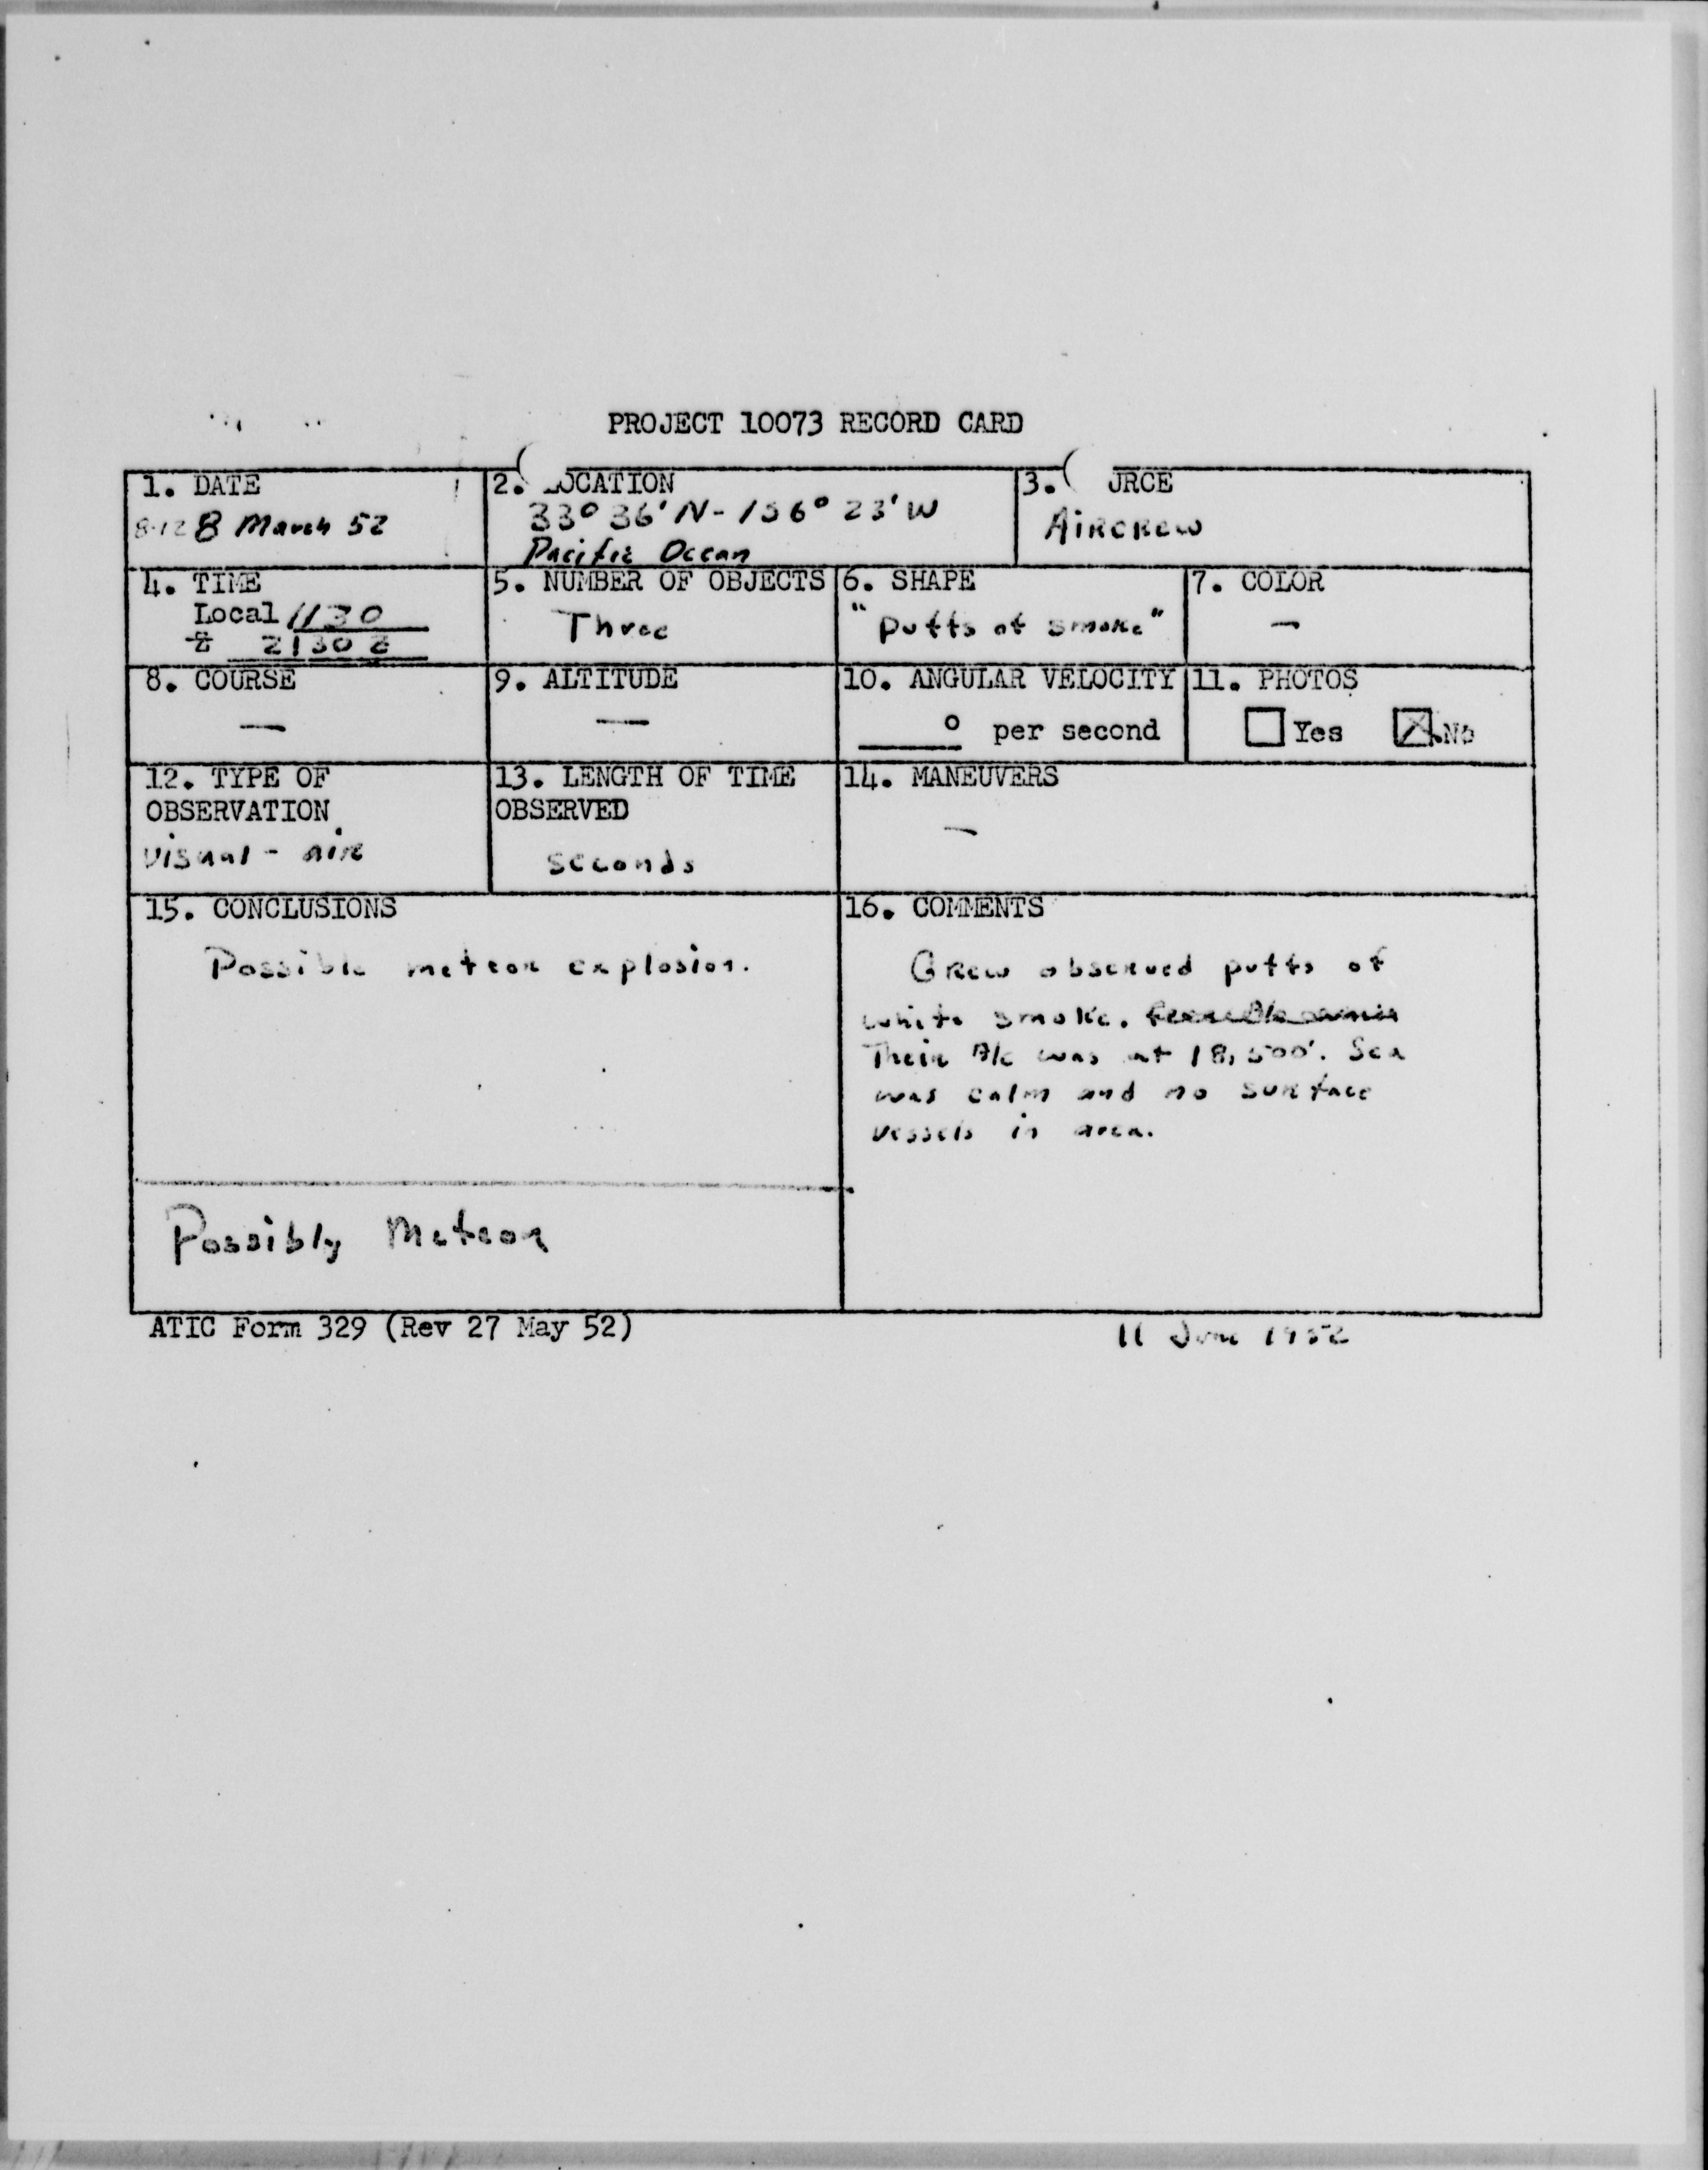 PROJECT 10073 RECORD CARD
1. DATE
8-12 8 March 52
2. LOCATION
33° 36' N - 156° 23' W
Pacific Ocean
3. URCE
AiRCRew
4. TIME
Local 1130
Z 2130 Z
5. NUMBER OF OBJECTS
Three
6. SHAPE
"Puffs of smoke"
7. COLOR
—
8. COURSE
—
9. ALTITUDE
—
10. ANGULAR VELOCITY
° per second
11. PHOTOS
Yes No
12. TYPE OF
OBSERVATION
Visual - air
13. LENGTH OF TIME
OBSERVED
seconds
14. MANEUVERS
—
15. CONCLUSIONS
Possible meteor explosion.
Possibly Meteor
16. COMMENTS
Crew observed puffs of
white smoke.
Their A/c was at 18,500'. Sea
was calm and no surface
vessels in area.
ATIC Form 329 (Rev 27 May 52)
11 June 1952